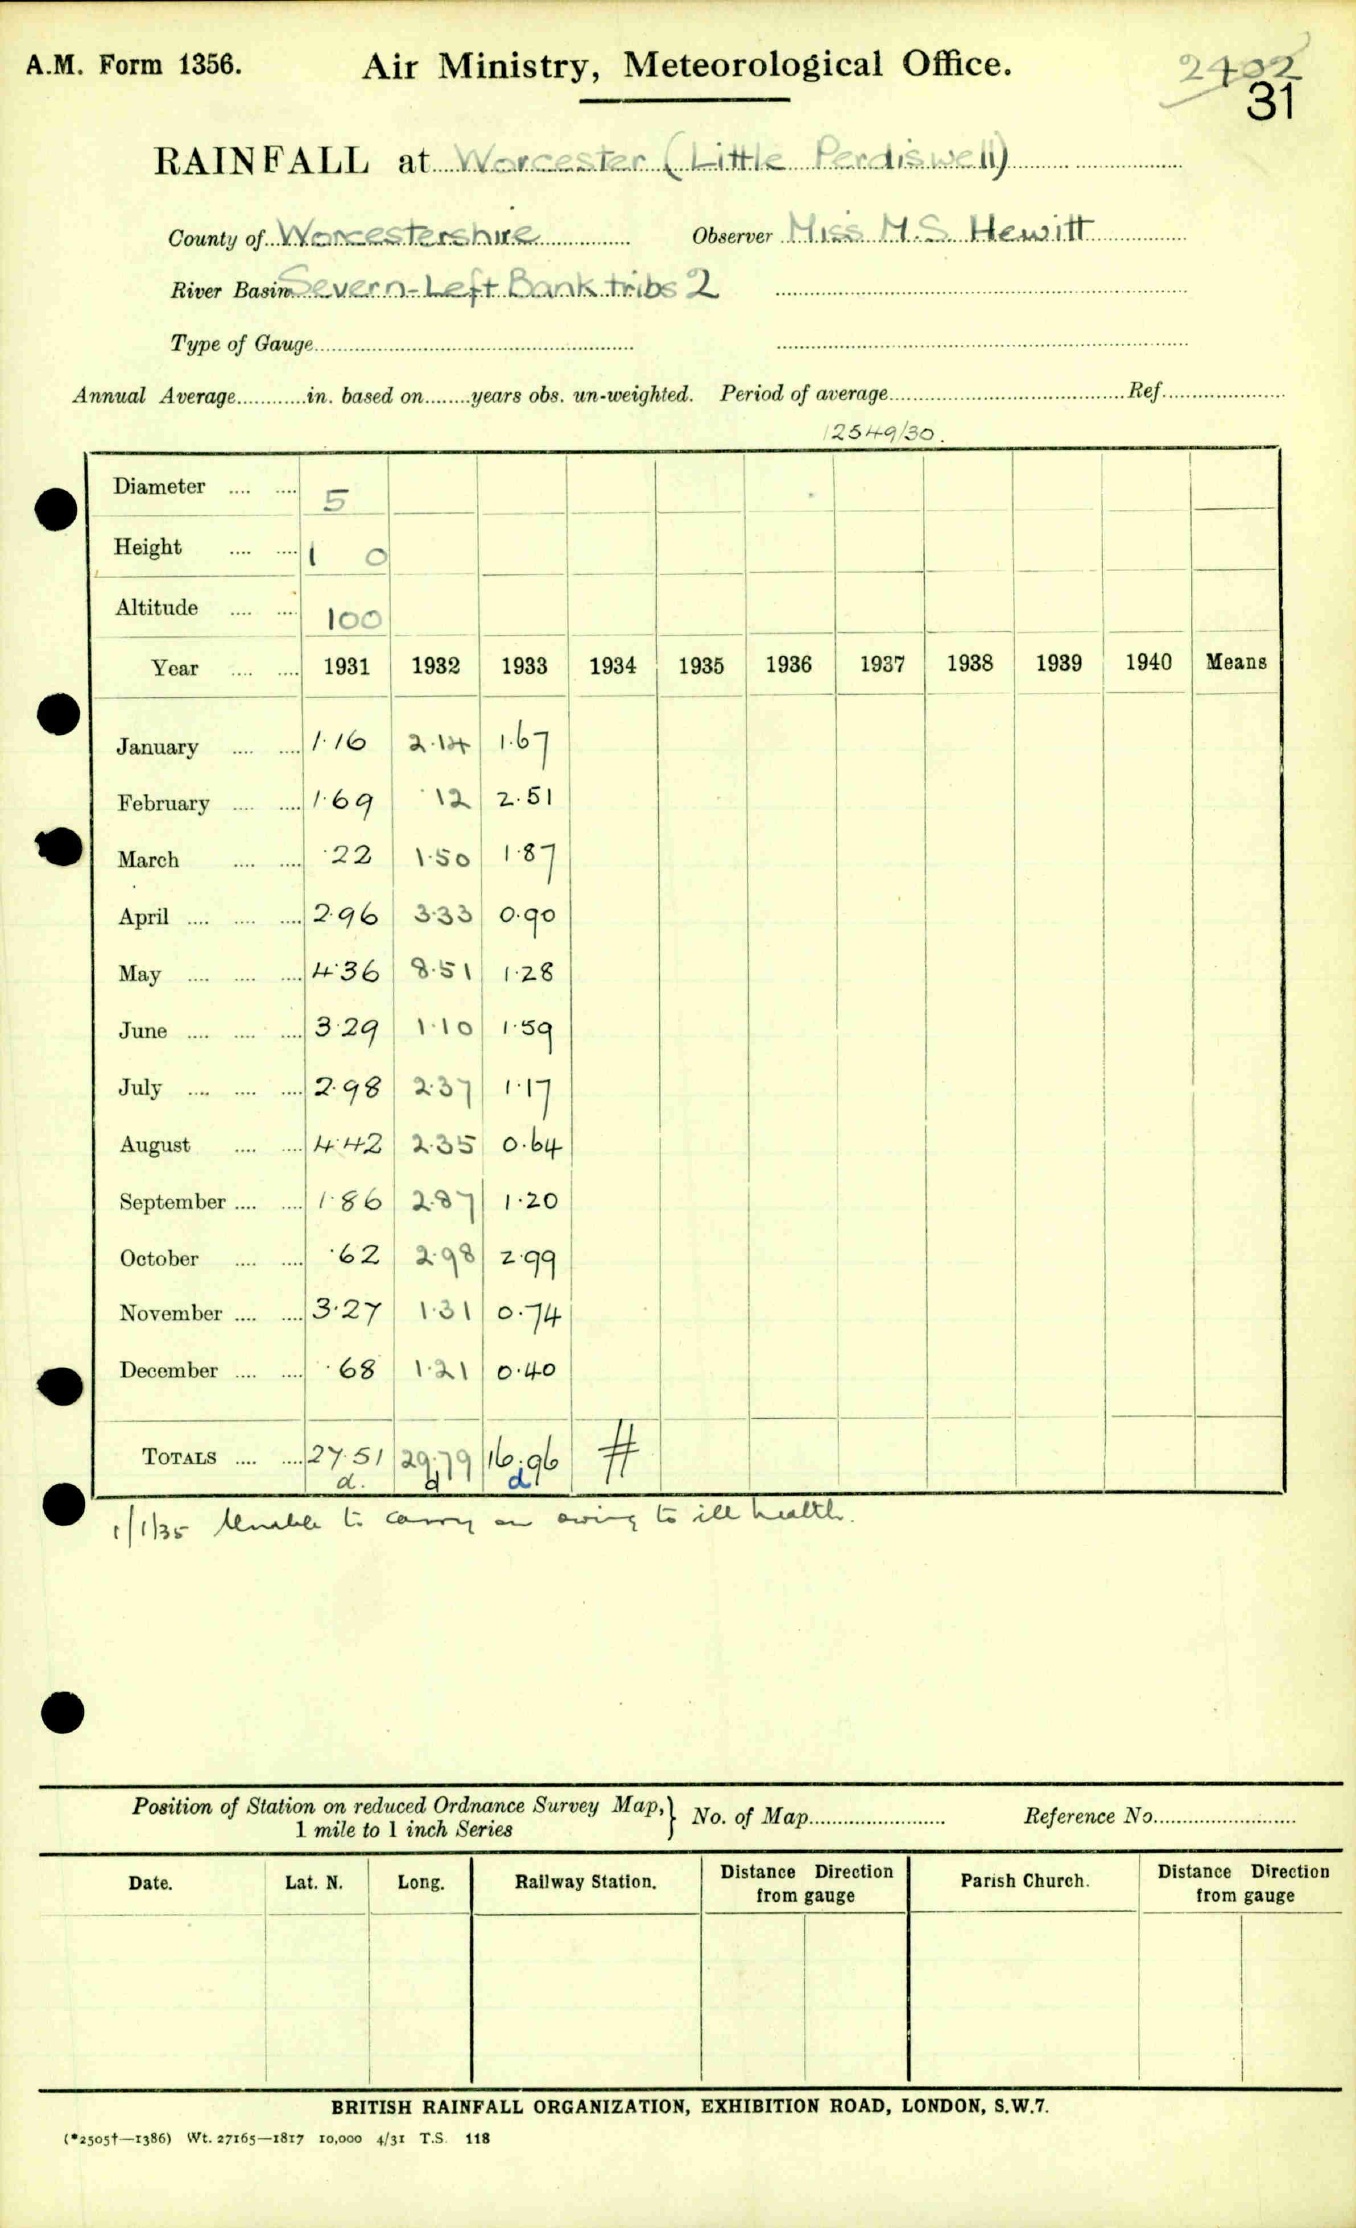 A.M. Form 1356.
Air Ministry, Meteorological Office.
2402
31
RAINFALL at Worcester (Little Perdiswell)
County of Worcestershire Observer Miss M.S. Hewitt
River Basin Severn-Left Bank tribs 2
Type of Gauge
Annual Average in. based on years obs. un-weighted. Period of average Ref.
12549/30.
Diameter 5
Height 1 0
Altitude 100
Year 1931 1932 1933 1934 1935 1936 1937 1938 1939 1940 Means
January 1.16 2.14 1.67
February 1.69 .12 2.51
March .22 1.50 1.87
April 2.96 3.33 0.90
May 4.36 8.51 1.28
June 3.29 1.10 1.59
July 2.98 2.37 1.17
August 4.42 2.35 0.64
September 1.86 2.87 1.20
October .62 2.98 2.99
November 3.27 1.31 0.74
December .68 1.21 0.40
TOTALS 27.51 29.79 16.96 #
d. d d
1/1/35 Unable to carry on owing to ill health.
Position of Station on reduced Ordnance Survey Map, } No. of Map Reference No.
1 mile to 1 inch Series
Date. Lat. N. Long. Railway Station. Distance Direction from gauge Parish Church. Distance Direction from gauge
BRITISH RAINFALL ORGANIZATION, EXHIBITION ROAD, LONDON, S.W.7.
(*2505†—1386) Wt. 27165—1817 10,000 4/31 T.S. 118